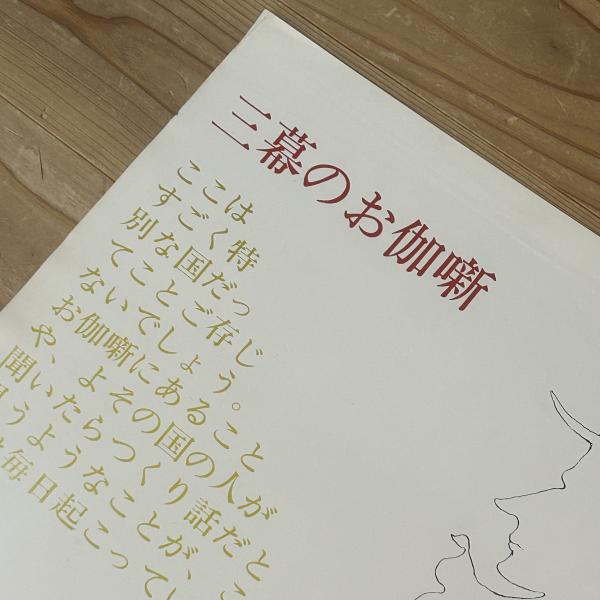 三幕のお伽噺
ここは
すごく特
別な国だっ
てことご存じ
ないでしょう。
お伽噺にあること
や、よその国の人が
聞いたらつくり話だと
うようなことが、こ
毎日起こってい